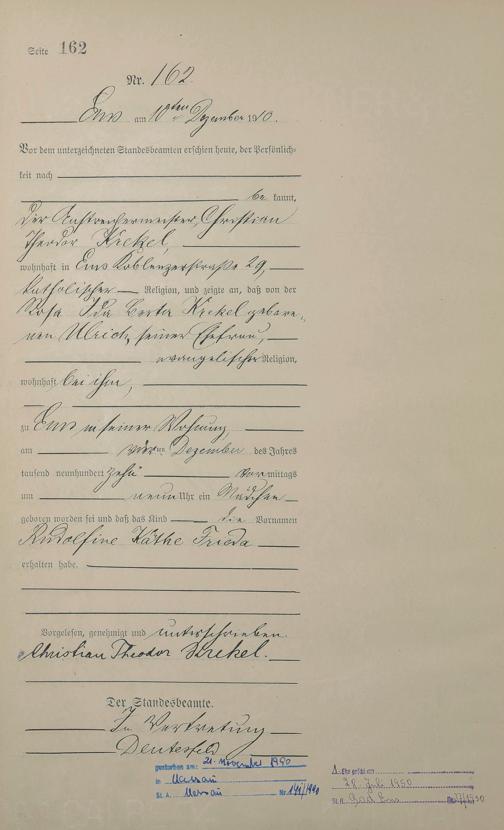 Seite 162
Nr. 162.
Ems am 10ten Dezember 1910.
Vor dem unterzeichneten Standesbeamten erschien heute, der Persönlich-
keit nach
be kannt,
der Anstreichermeister, Christian
Theodor Krekel,
wohnhaft in Ems Koblenzerstraße 29,
katholischer Religion, und zeigte an, daß von der
Rosa Ida Berta Krekel gebore-
nen Ulrich, seiner Ehefrau,
evangelischer Religion,
wohnhaft bei ihm,
zu Ems in seiner Wohnung
am Dezember des Jahres
tausend neunhundert zehn vor mittags
um neun Uhr ein Mädchen
geboren worden sei und daß das Kind die Vornamen
Rudolfine Käthe Frieda
erhalten habe.
Vorgelesen, genehmigt und unterschrieben.
Christian Theodor Krekel.
Der Standesbeamte.
In Vertretung
gestorben am: 21. November 1990
in Nassau
St. A. Nassau Nr. /1990
1. Ehe geschl. am
Juli 1950
St. A. Bad Ems /1950